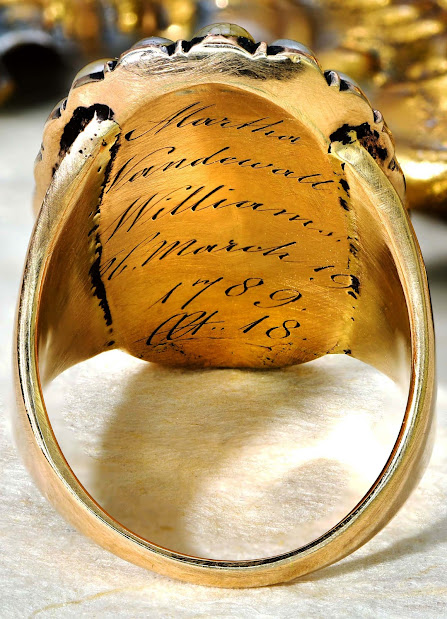 Martha
Vandewall
Williams.
16. March 19
1789.
Æt. 18.